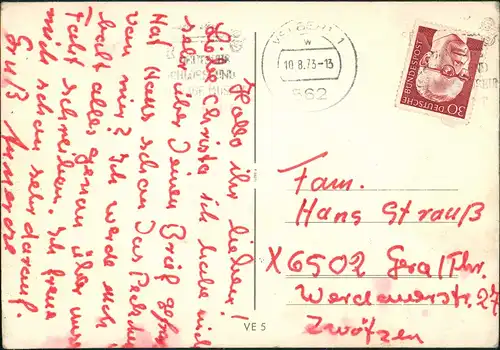 Hallo ihr lieben!
Liebe Christa ich habe mich
sehr über Deinen Brief gefreut.
Hat Hans schon das Päckchen
von mir? Ich werde euch
bald alles genau über unsere
Fahrt schreiben. Ich freue
mich schon sehr darauf.
Gruß
VELBERT 1
w
10.8.73-13
562
DEUTSCHE BUNDESPOST
30
Fam.
Hans Strauß
X6502 Gera/Thr.
Werdauerstr. 27
Zwötzen
VE 5